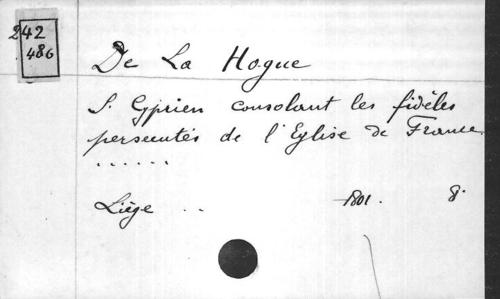 242
486
De La Hogue
S. Cyprien consolant les fidèles
persecutés de l'Eglise de France
......
Liège .. 1801. 8.